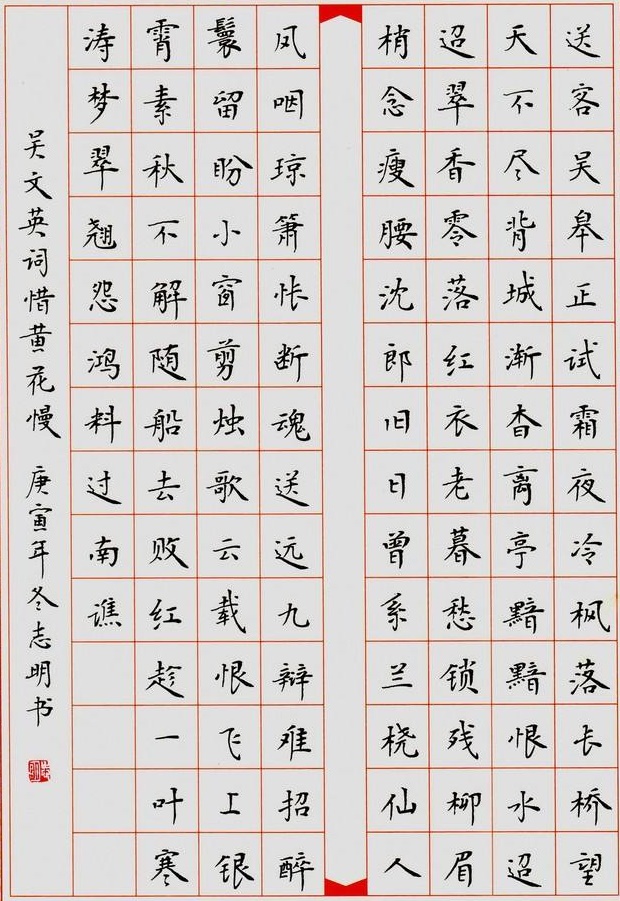 送客吴皋正试霜夜冷枫落长桥望
天不尽背城渐杳离亭黯黯恨水迢
迢翠香零落红衣老暮愁锁残柳眉
梢念瘦腰沈郎旧日曾系兰桡仙人
凤咽琼箫怅断魂送远九辩难招醉
鬟留盼小窗剪烛歌云载恨飞上银
霄素秋不解随船去败红趁一叶寒
涛梦翠翘怨鸿料过南谯
吴文英词惜黄花慢 庚寅年冬志明书